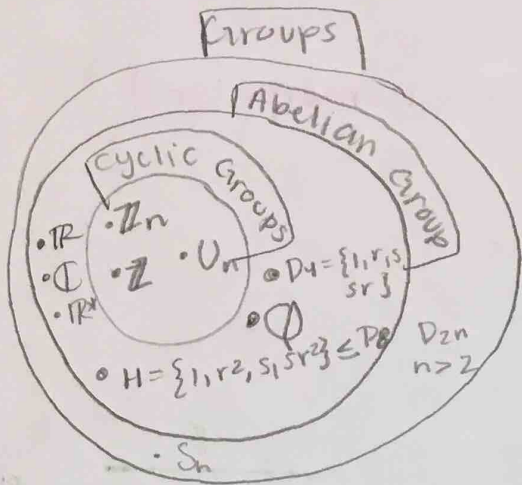 Groups
Abelian Group
Cyclic Groups
• ℤn
• ℝ
• Un
• ℤ
• ℂ
• D4 = {1, r, s,
sr}
• ℝ*
• H = {1, r², s, sr²} ≤ D8
D2n
n > 2
• Sn